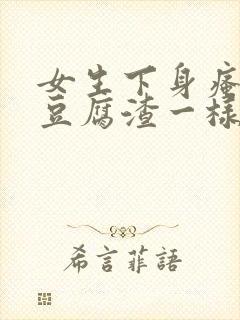 女生下身瘙
豆腐渣一様
希言菲語